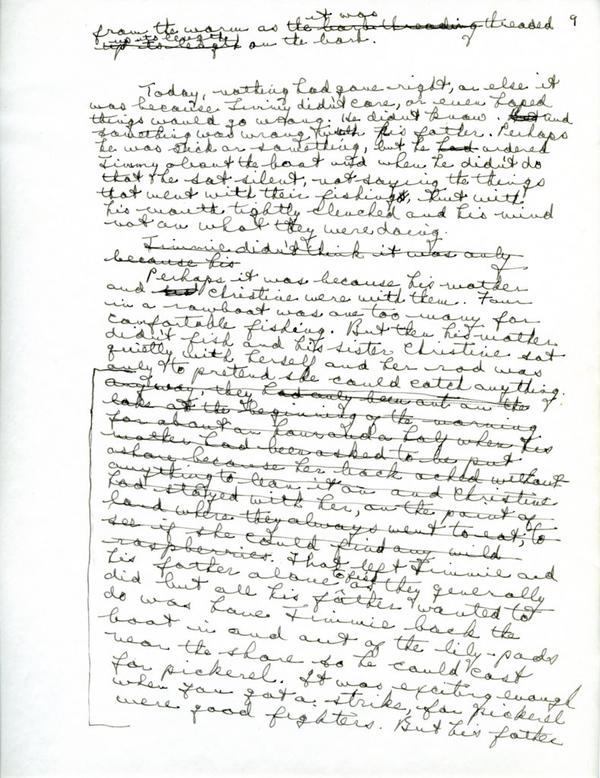 9
it was
from the worm as the barb threading threaded
up its length
up its length on the barb.
Today, nothing had gone right, or else it
was because Timmy didn't care, or even hoped
things would go wrong. He didn't know. And
something was wrong with his father. Perhaps
he was sick or something, but he had ordered
Timmy about the boat and when he didn't do
that he sat silent, not saying the things
that went with their fishing, but with
his mouth tightly clenched and his mind
not on what they were doing.
Timmie didn't think it was only
because his
Perhaps it was because his mother
and Christine were with them. Four
in a rowboat was one too many for
comfortable fishing. But then his mother
didn't fish and his sister Christine sat
quietly with herself and her rod was
only to pretend she could catch anything.
anyway, they had only been out on the
lake at the beginning of the morning
for about an hour and a half when his
mother had been asked to be put
ashore because her back ached without
anything to lean it on and Christine
had stayed with her, on the point of
land where they always went to eat, to
see if she could find any wild
raspberries. That left Timmie and
his father alone as they generally
did but all his father wanted to
do was have Timmie back the
boat in and out of the lily-pads
near the shore so he could cast
for pickerel. It was exciting enough
when you got a strike, for pickerel
were good fighters. But his father